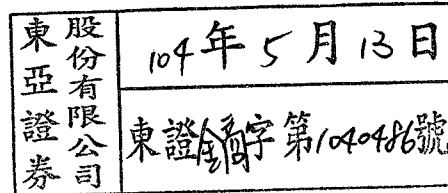 東亞證券
股份有限公司
104年5月13日
東證金商字第1040486號